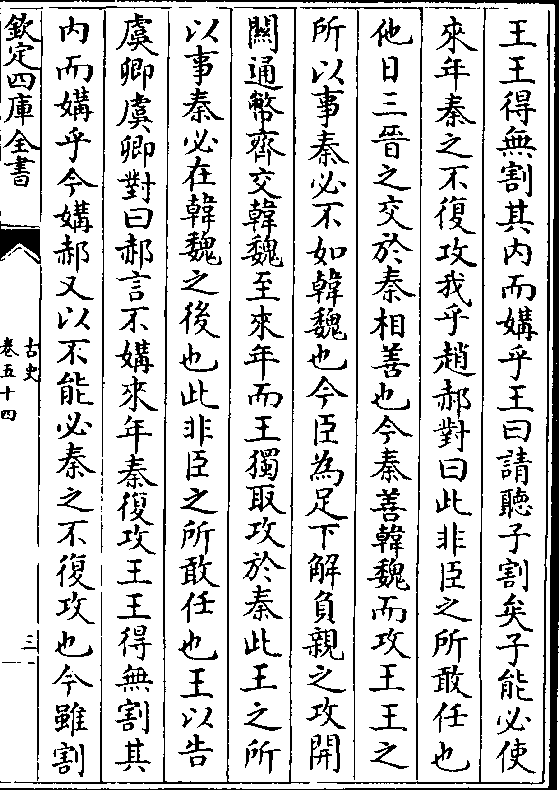 王王得無割其内而媾乎王曰請聽子割矣子能必使
來年秦之不復攻我乎趙郝對曰此非臣之所敢任也
他日三晉之交於秦相善也今秦善韓魏而攻王王之
所以事秦必不如韓魏也今臣為足下解負親之攻開
闗通幣齊交韓魏至來年而王獨取攻於秦此王之所
以事秦必在韓魏之後也此非臣之所敢任也王以告
虞卿虞卿對曰郝言不媾來年秦復攻王王得無割其
内而媾乎今媾郝又以不能必秦之不復攻也今雖割
欽定四庫全書
古史
卷五十四
三